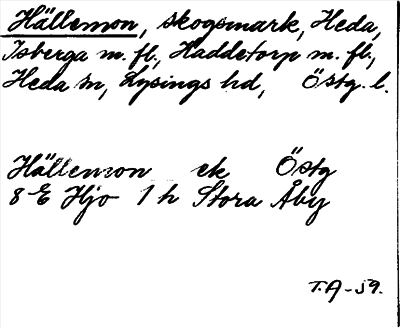 Hällemon, skogsmark, Heda,
Isberga m. fl., Haddetorp m. fl.,
Heda sn, Lysings hd, Östg. l.
Hällemon ek Östg
8 E Hjo 1 h Stora Åby
T.A-59.